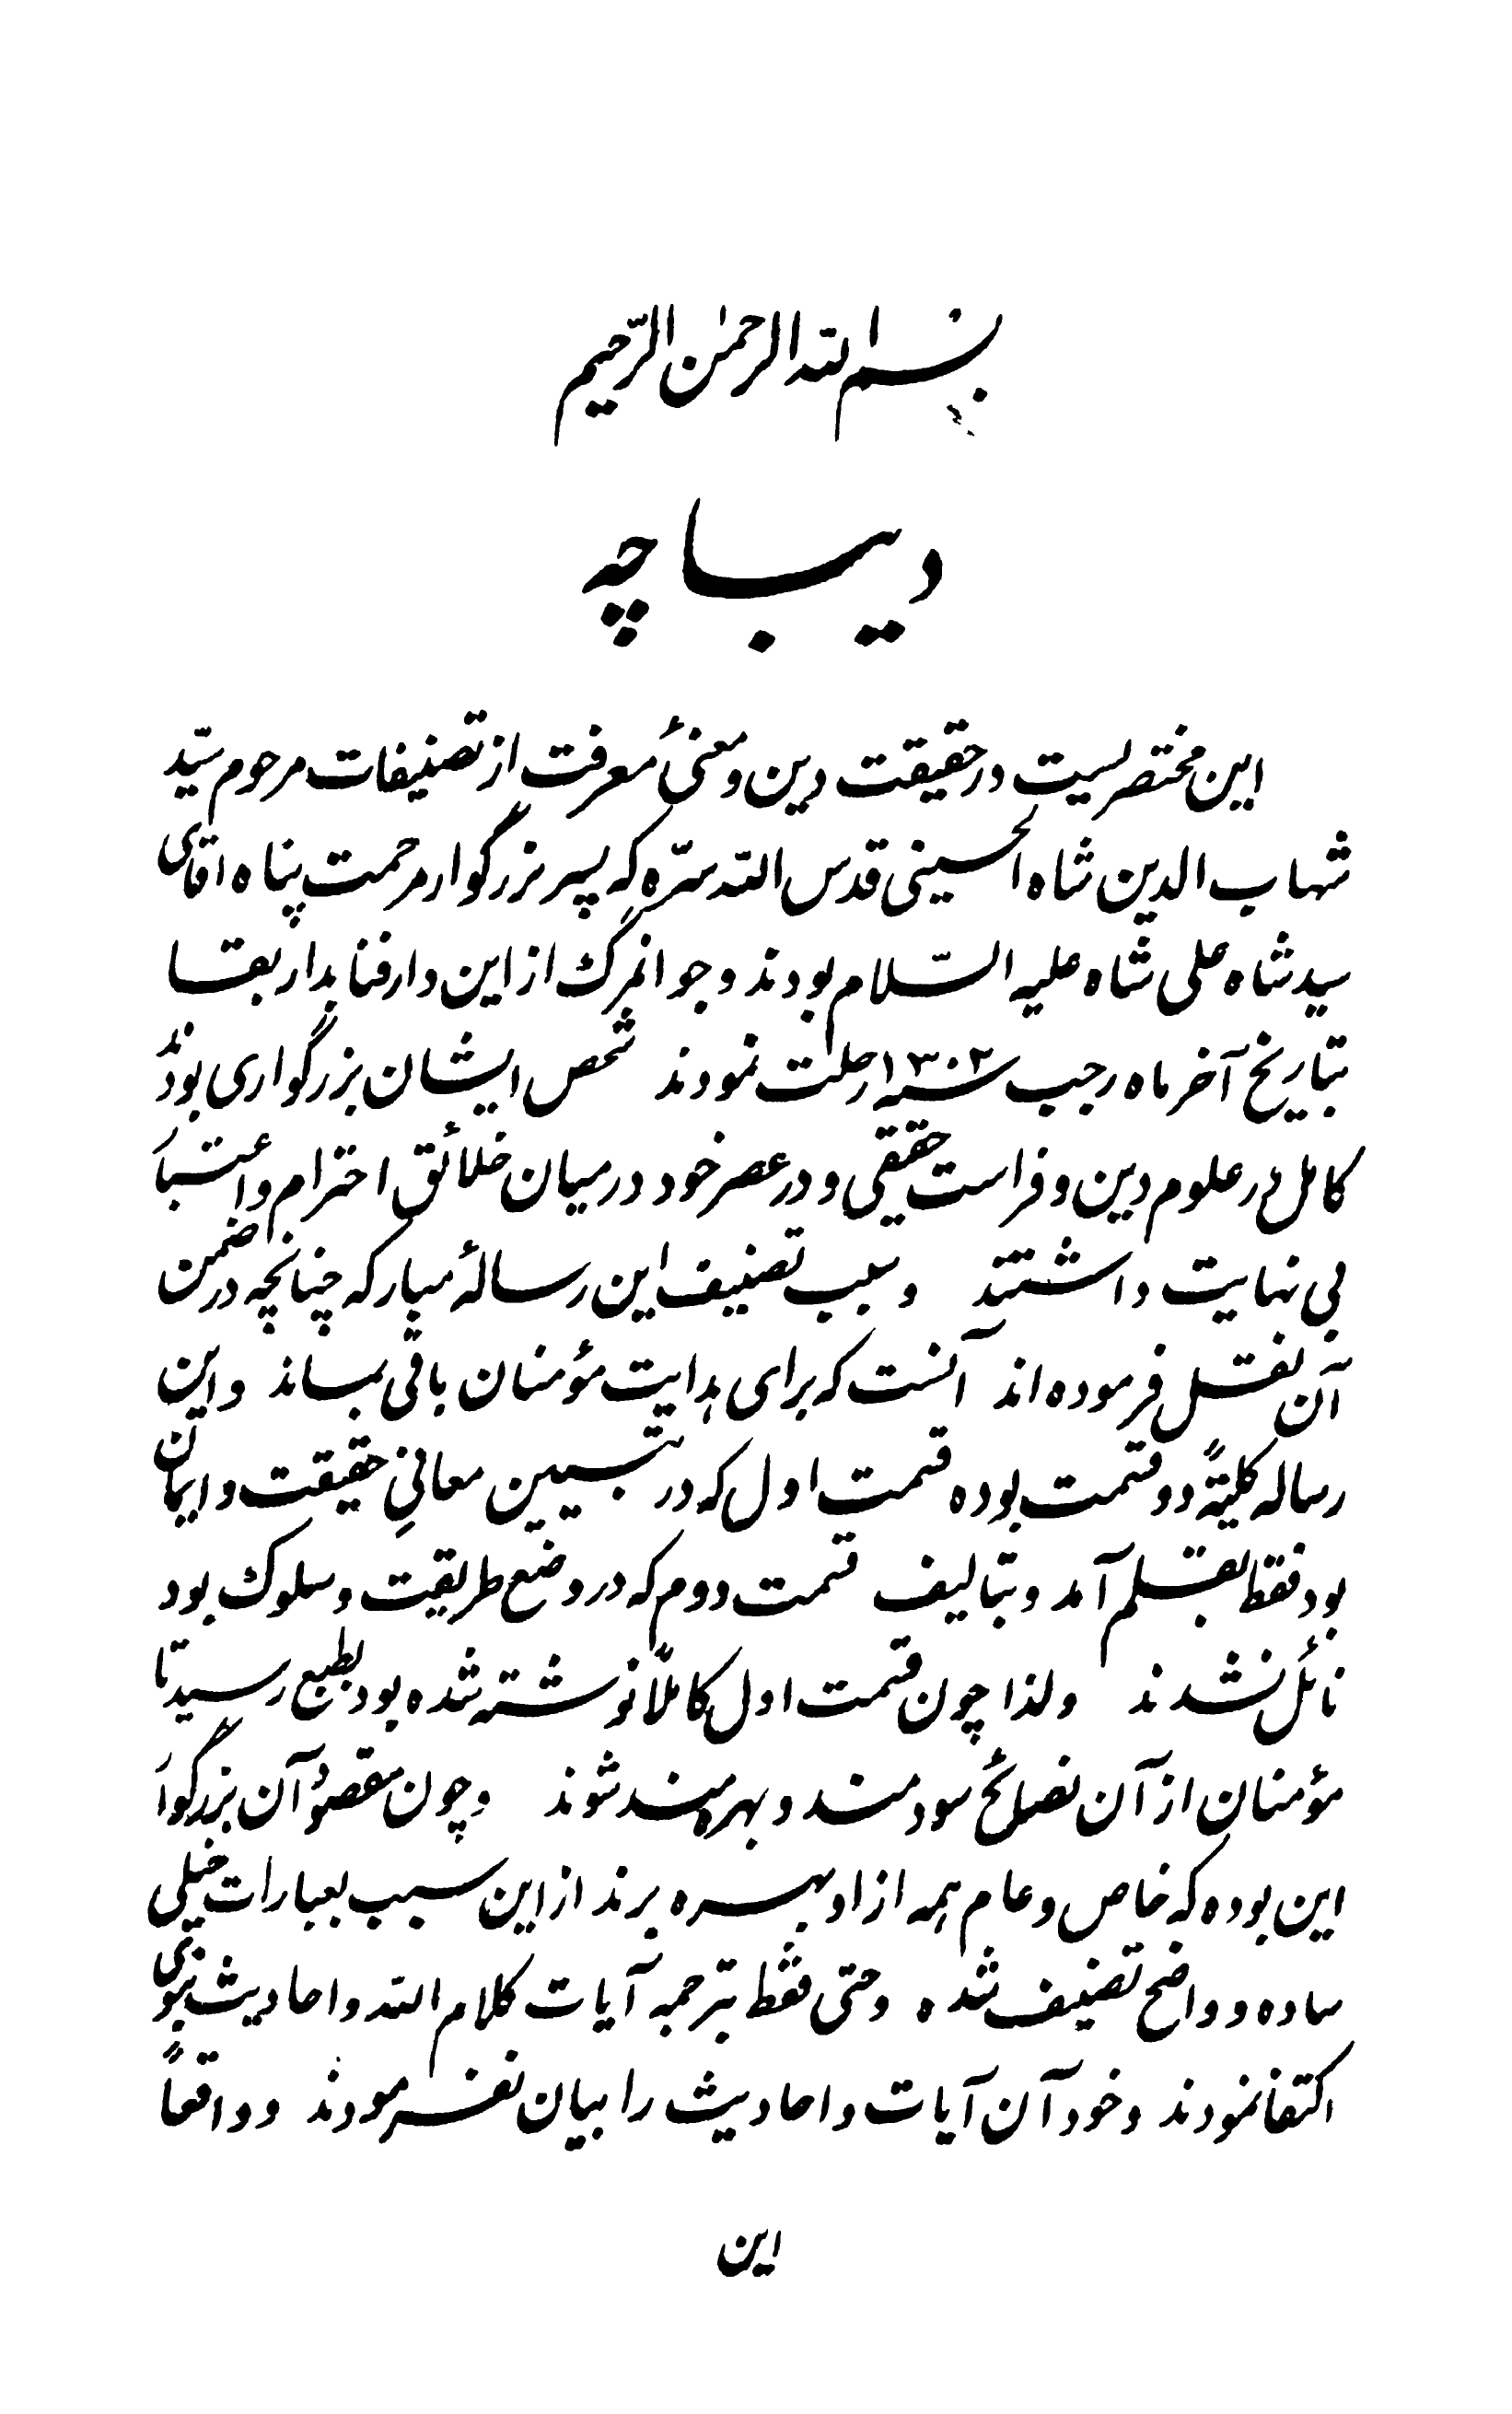 بسم الله الرحمن الرّحیم
دیباچه
این مختصریست در حقیقت دین و معنیٔ معرفت از تصنیفات مرحوم سیّد
شهاب الدین شاه الحسینی قدس الله سرّه که پسر بزرگوار مرحمت پناه اقای
سید شاه علی شاه علیه السّلام بودند و جوانمرگ از این دار فنا بدار بقا
بتاریخ آخر ماه رجب سنه ۱۳۰۲ رحلت نمودند شخص ایشان بزرگواری بودند
کامل در علوم دین و فراست حقیقی و در عصر خود در میان خلائق احترام و اعتبار
بی نهایت داشتند و سبب تصنیف این رسالهٔ مبارکه چنانچه در ضمن
آن نقل فرموده اند آنست که برای هدایت مؤمنان باقی بماند و این
رساله کلیةً دو قسمت بوده قسمت اول که در تبیین معانیِ حقیقت و ایمان
بود فقط بقلم آمد و بتالیف قسمت دوم که در وضع طریقت و سلوک بود
نائل نشدند ولذا چون قسمت اول کاملاً نوشته شده بود بطبع رسید تا
مؤمنان از آن نصائح سودمند و بهره مند شوند و چون مقصود آن بزرگوار
این بوده که خاص و عام همه از او بهره برند از این سبب بعبارات خیلی
ساده و واضح تصنیف شده و حتی فقط بترجمه آیات کلام الله و احادیث نبوی
اکتفا نمودند و خود آن آیات و احادیث را بیان نفرمودند و واقعاً
این